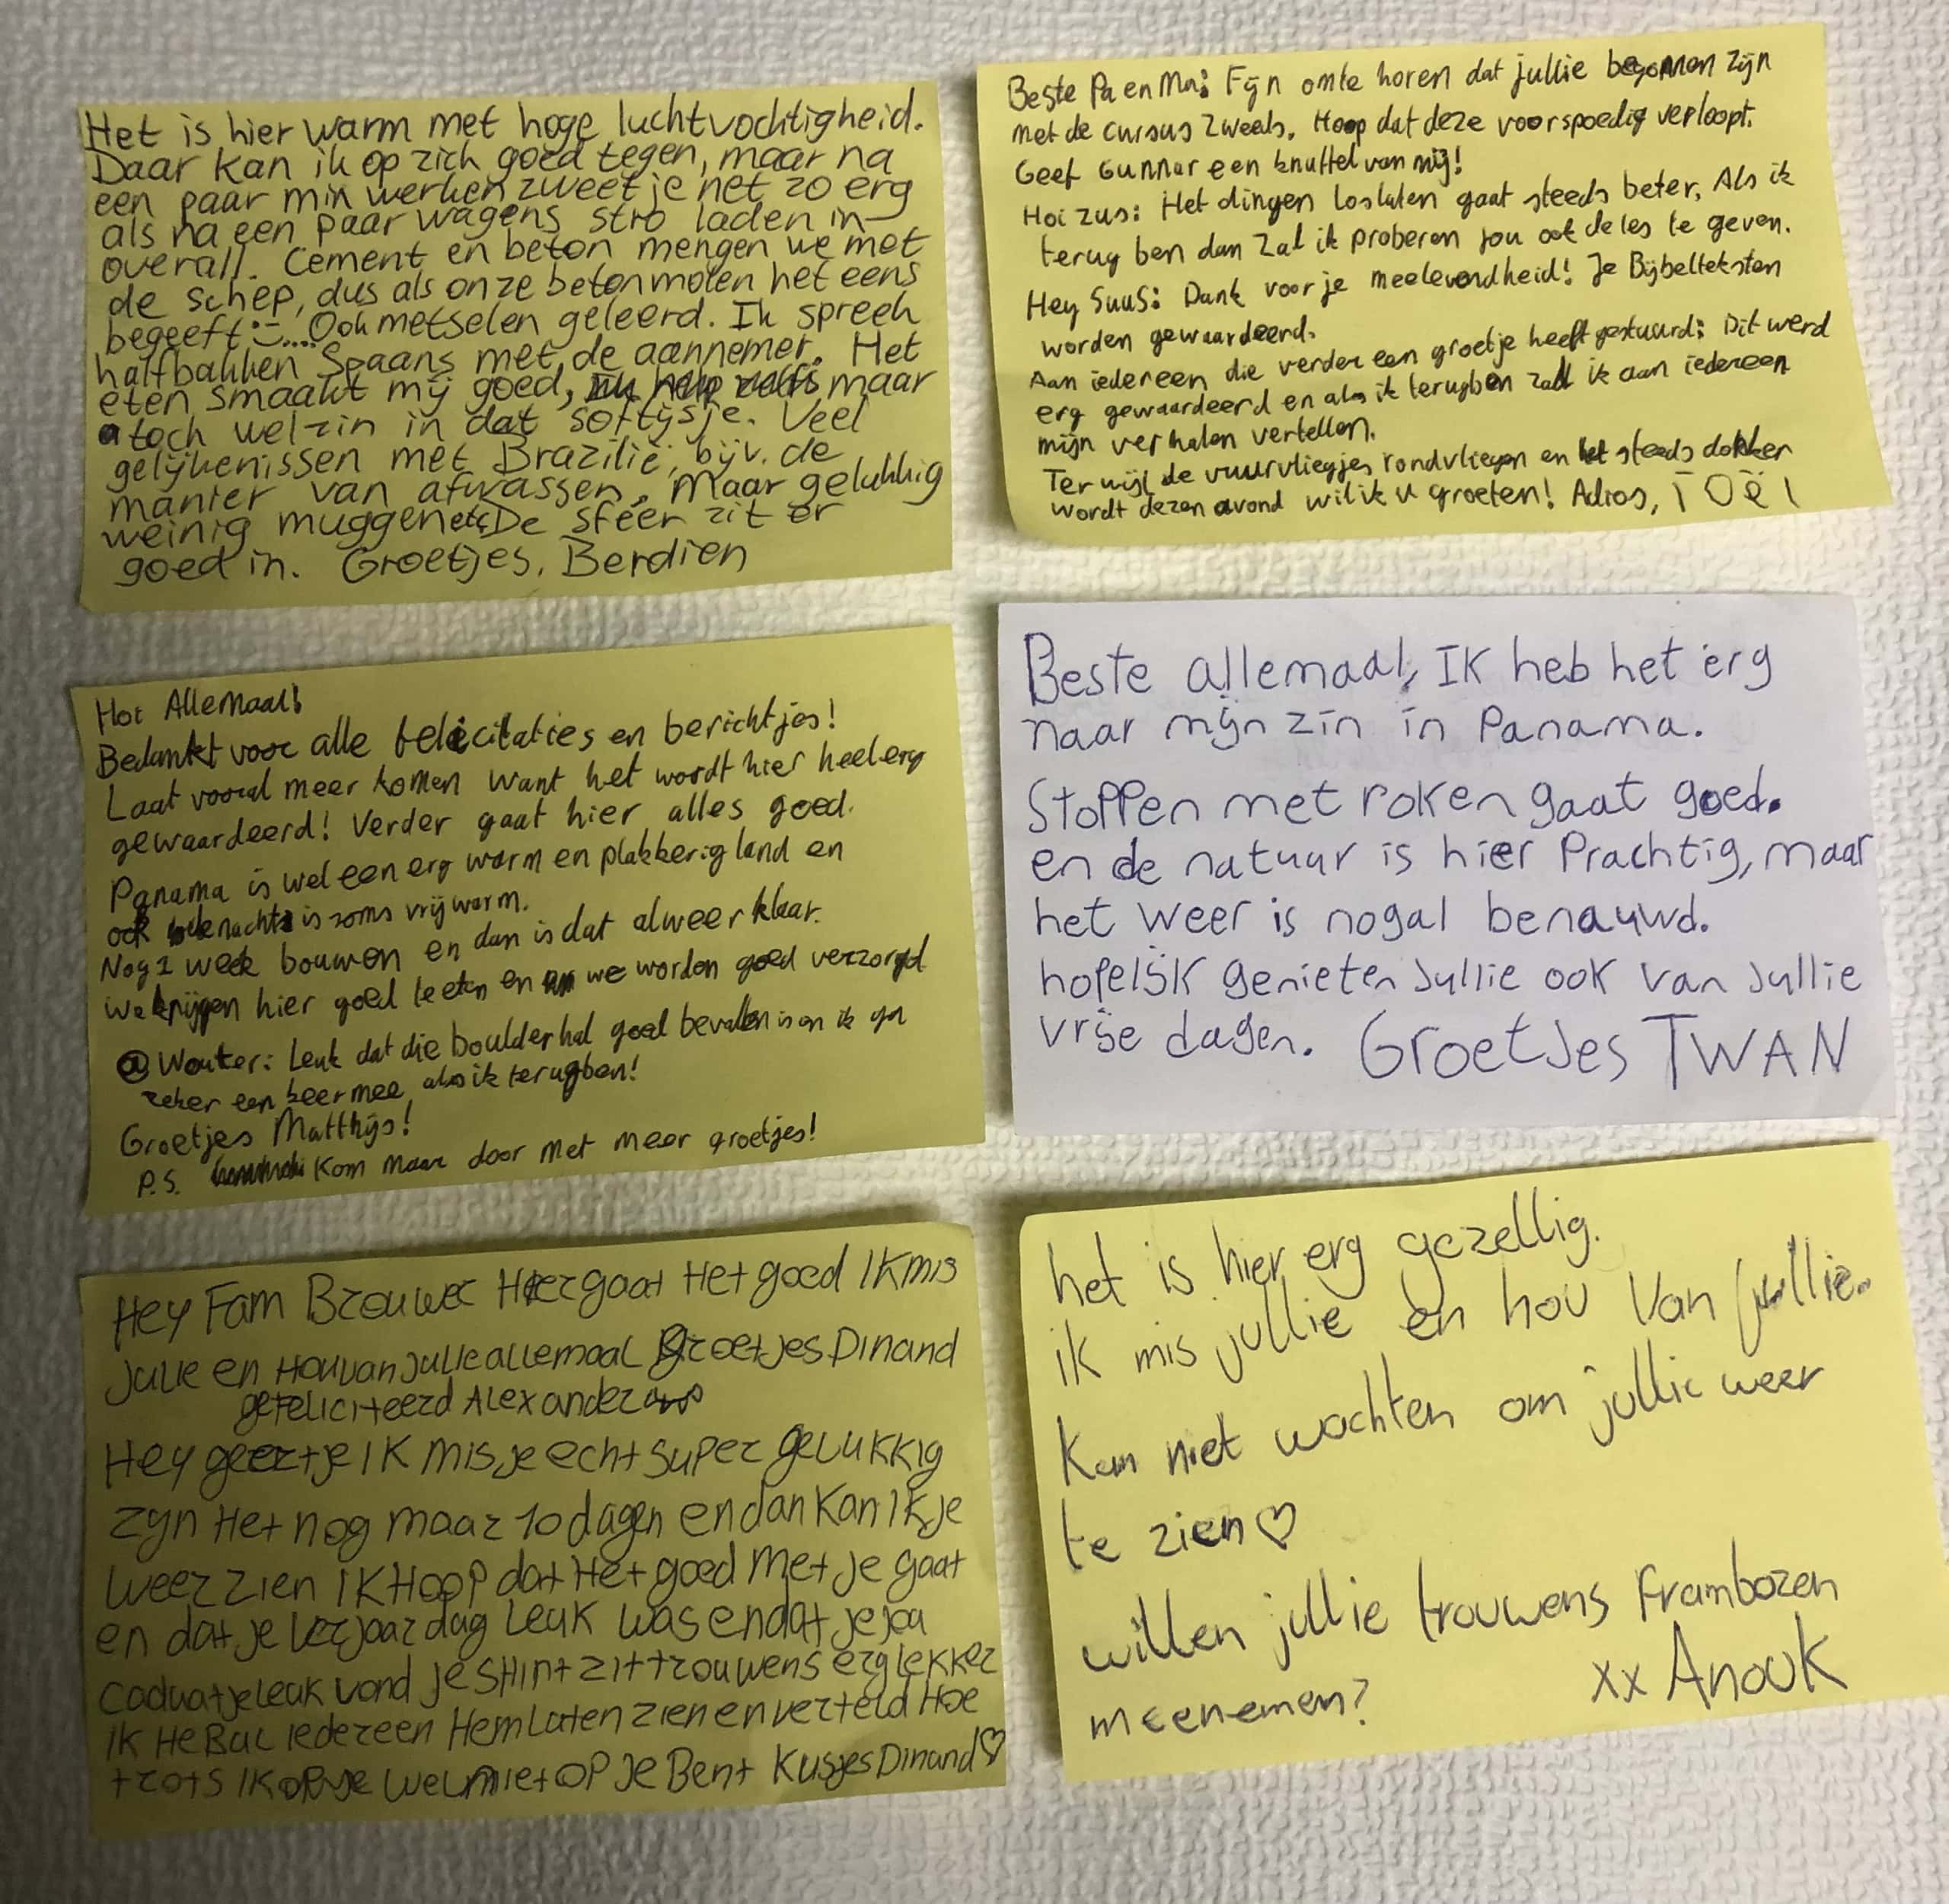 Het is hier warm met hoge luchtvochtigheid.
Daar kan ik op zich goed tegen, maar na
een paar min werken zweet je net zo erg
als na een paar wagens stro laden in
overall. Cement en beton mengen we met
de schep, dus als onze betonmolen het eens
begeeft :-).... Ook metselen geleerd. Ik spreek
halfbakken Spaans met de aannemer. Het
eten smaakt mij goed, maar
toch wel zin in dat softijsje. Veel
gelijkenissen met Brazilië, bijv. de
manier van afwassen. Maar gelukkig
weinig muggen etc. De sfeer zit er
goed in. Groetjes, Berdien
Beste Pa en Ma: Fijn omte horen dat jullie begonnen zijn
met de cursus Zweeds. Hoop dat deze voorspoedig verloopt.
Geef Gunnar een knuffel van mij!
Hoi zus: Het dingen loslaten gaat steeds beter. Als ik
terug ben dan zal ik proberen jou ook de les te geven.
Hey Suus: Dank voor je meelevendheid! Je Bijbelteksten
worden gewaardeerd.
Aan iedereen die verder een groetje heeft gestuurd: Dit werd
erg gewaardeerd en als ik terugben zal ik aan iedereen
mijn verhalen vertellen.
Terwijl de vuurvliegjes rondvliegen en het steeds donker
wordt dezen avond wil ik u groeten! Adios,
Hoi Allemaal!
Bedankt voor alle felicitaties en berichtjes!
Laat vooral meer komen want het wordt hier heel erg
gewaardeerd! Verder gaat hier alles goed.
Panama is wel een erg warm en plakkerig land en
ook nachts is soms vrij warm.
Nog 1 week bouwen en dan is dat alweer klaar.
We krijgen hier goed te eten en we worden goed verzorgd
@Wouter: Leuk dat die boulderhal goed bevallen is en ik ga
zeker een keer mee, als ik terugben!
Groetjes Matthijs!
P.S. Kom maar door met meer groetjes!
Beste allemaal, IK heb het erg
naar mijn zin in Panama.
Stoppen met roken gaat goed.
en de natuur is hier Prachtig, maar
het weer is nogal benauwd.
hopelijk genieten Jullie ook van Jullie
vrije dagen. Groetjes TWAN
Hey Fam Brouwer Hier gaat Het goed IK mis
Julie en Hou van Julie allemaal Groetjes Dinand
gefeliciteerd Alexander
Hey geertje IK mis je echt super gelukkig
zijn Het nog maar 10 dagen en dan Kan IK je
weer zien IK Hoop dat Het goed met je gaat
en dat je Verjaardag Leuk was en dat je
Caduatje leuk vond je SHirt zit trouwens erg lekker
IK HeB al iedereen Hem Laten zien en verteld Hoe
trots IK op je wel niet OP Je Bent Kusjes Dinand♡
het is hier erg gezellig.
ik mis jullie en hou van jullie.
Kan niet wachten om jullie weer
te zien♡
willen jullie trouwens frambozen
meenemen? xx Anouk